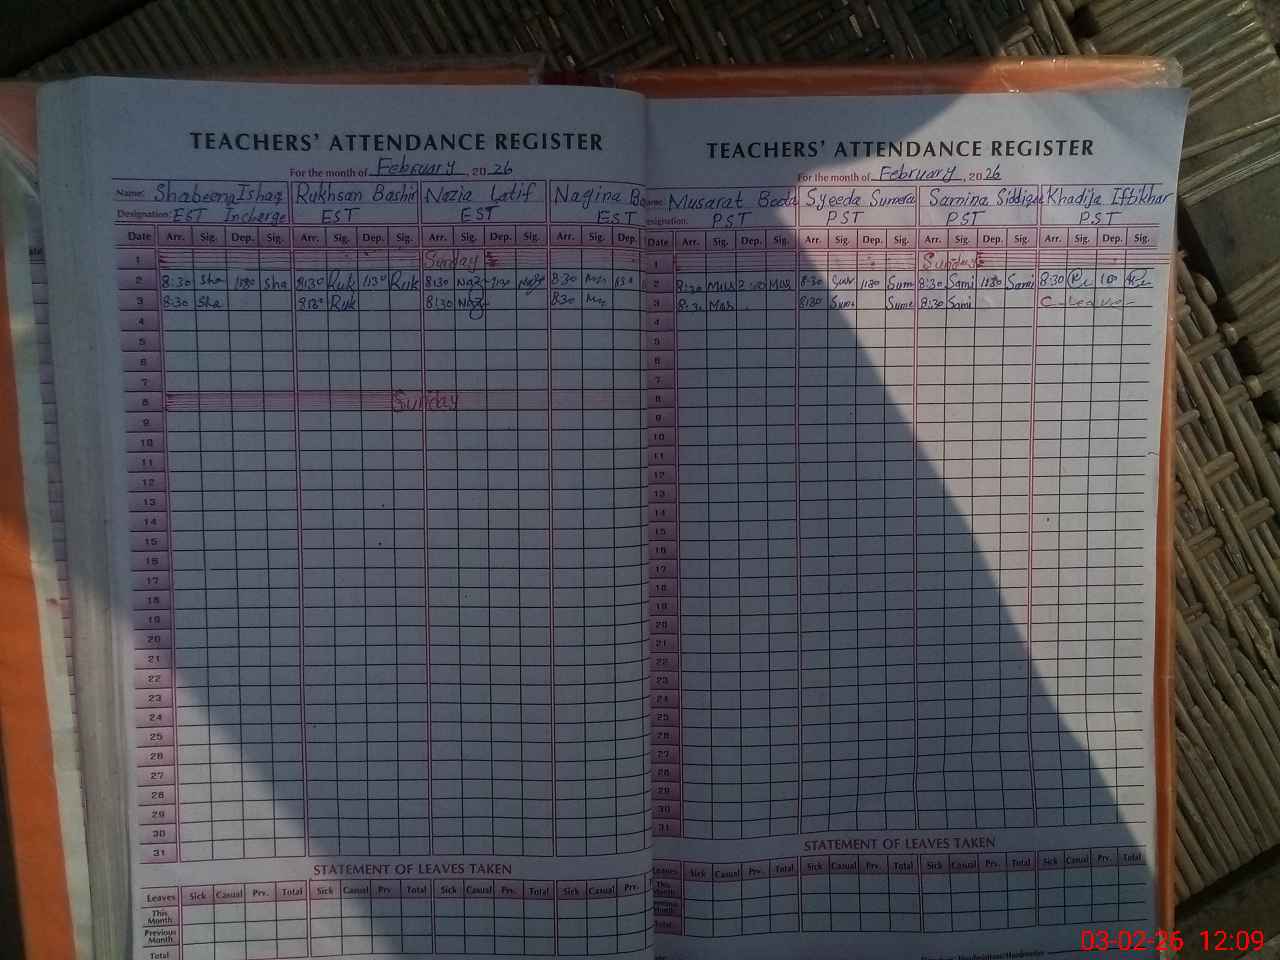 TEACHERS' ATTENDANCE REGISTER
For the month of February, 2026
Name: Shabeena Ishaq Rukhsan Bashir Nazia Latif Nagina
Designation: EST Incharge EST EST EST
Date Arr. Sig. Dep. Sig. Arr. Sig. Dep. Sig. Arr. Sig. Dep. Sig. Arr. Sig. Dep.
1 Sunday
2 8:30 Sha 1:30 Sha 8:30 Ruk 1:30 Ruk 8:30 Naz 1:30 Naz 8:30 1:30
3 8:30 Sha 8:30 Ruk 8:30 Naz 8:30
4
5
6
7
8 Sunday
9
10
11
12
13
14
15
16
17
18
19
20
21
22
23
24
25
26
27
28
29
30
31
STATEMENT OF LEAVES TAKEN
Leaves Sick Casual Prv. Total Sick Casual Prv Total Sick Casual Prv Total Sick Casual Prv.
This Month
Previous Month
Total
TEACHERS' ATTENDANCE REGISTER
For the month of February, 2026
Musarat Syeeda Sumera Samina Siddiqa Khadija Iftikhar
PST PST PST PST
Date Arr. Sig. Dep. Sig. Arr. Sig. Dep. Sig. Arr. Sig. Dep. Sig. Arr. Sig. Dep. Sig.
1 Sunday
2 8:30 Mus 2:00 Mus 8:30 Sum 1:30 Sum 8:30 Sami 1:30 Sami 8:30
3 8:30 Mus 8:30 Sum Sume 8:30 Sami C-Leave
4
5
6
7
8
9
10
11
12
13
14
15
16
17
18
19
20
21
22
23
24
25
26
27
28
29
30
31
STATEMENT OF LEAVES TAKEN
Leaves Sick Casual Prv. Total Sick Casual Prv. Total Sick Casual Prv. Total Sick Casual Prv. Total
This Month
Month
Total
03-02-26 12:09